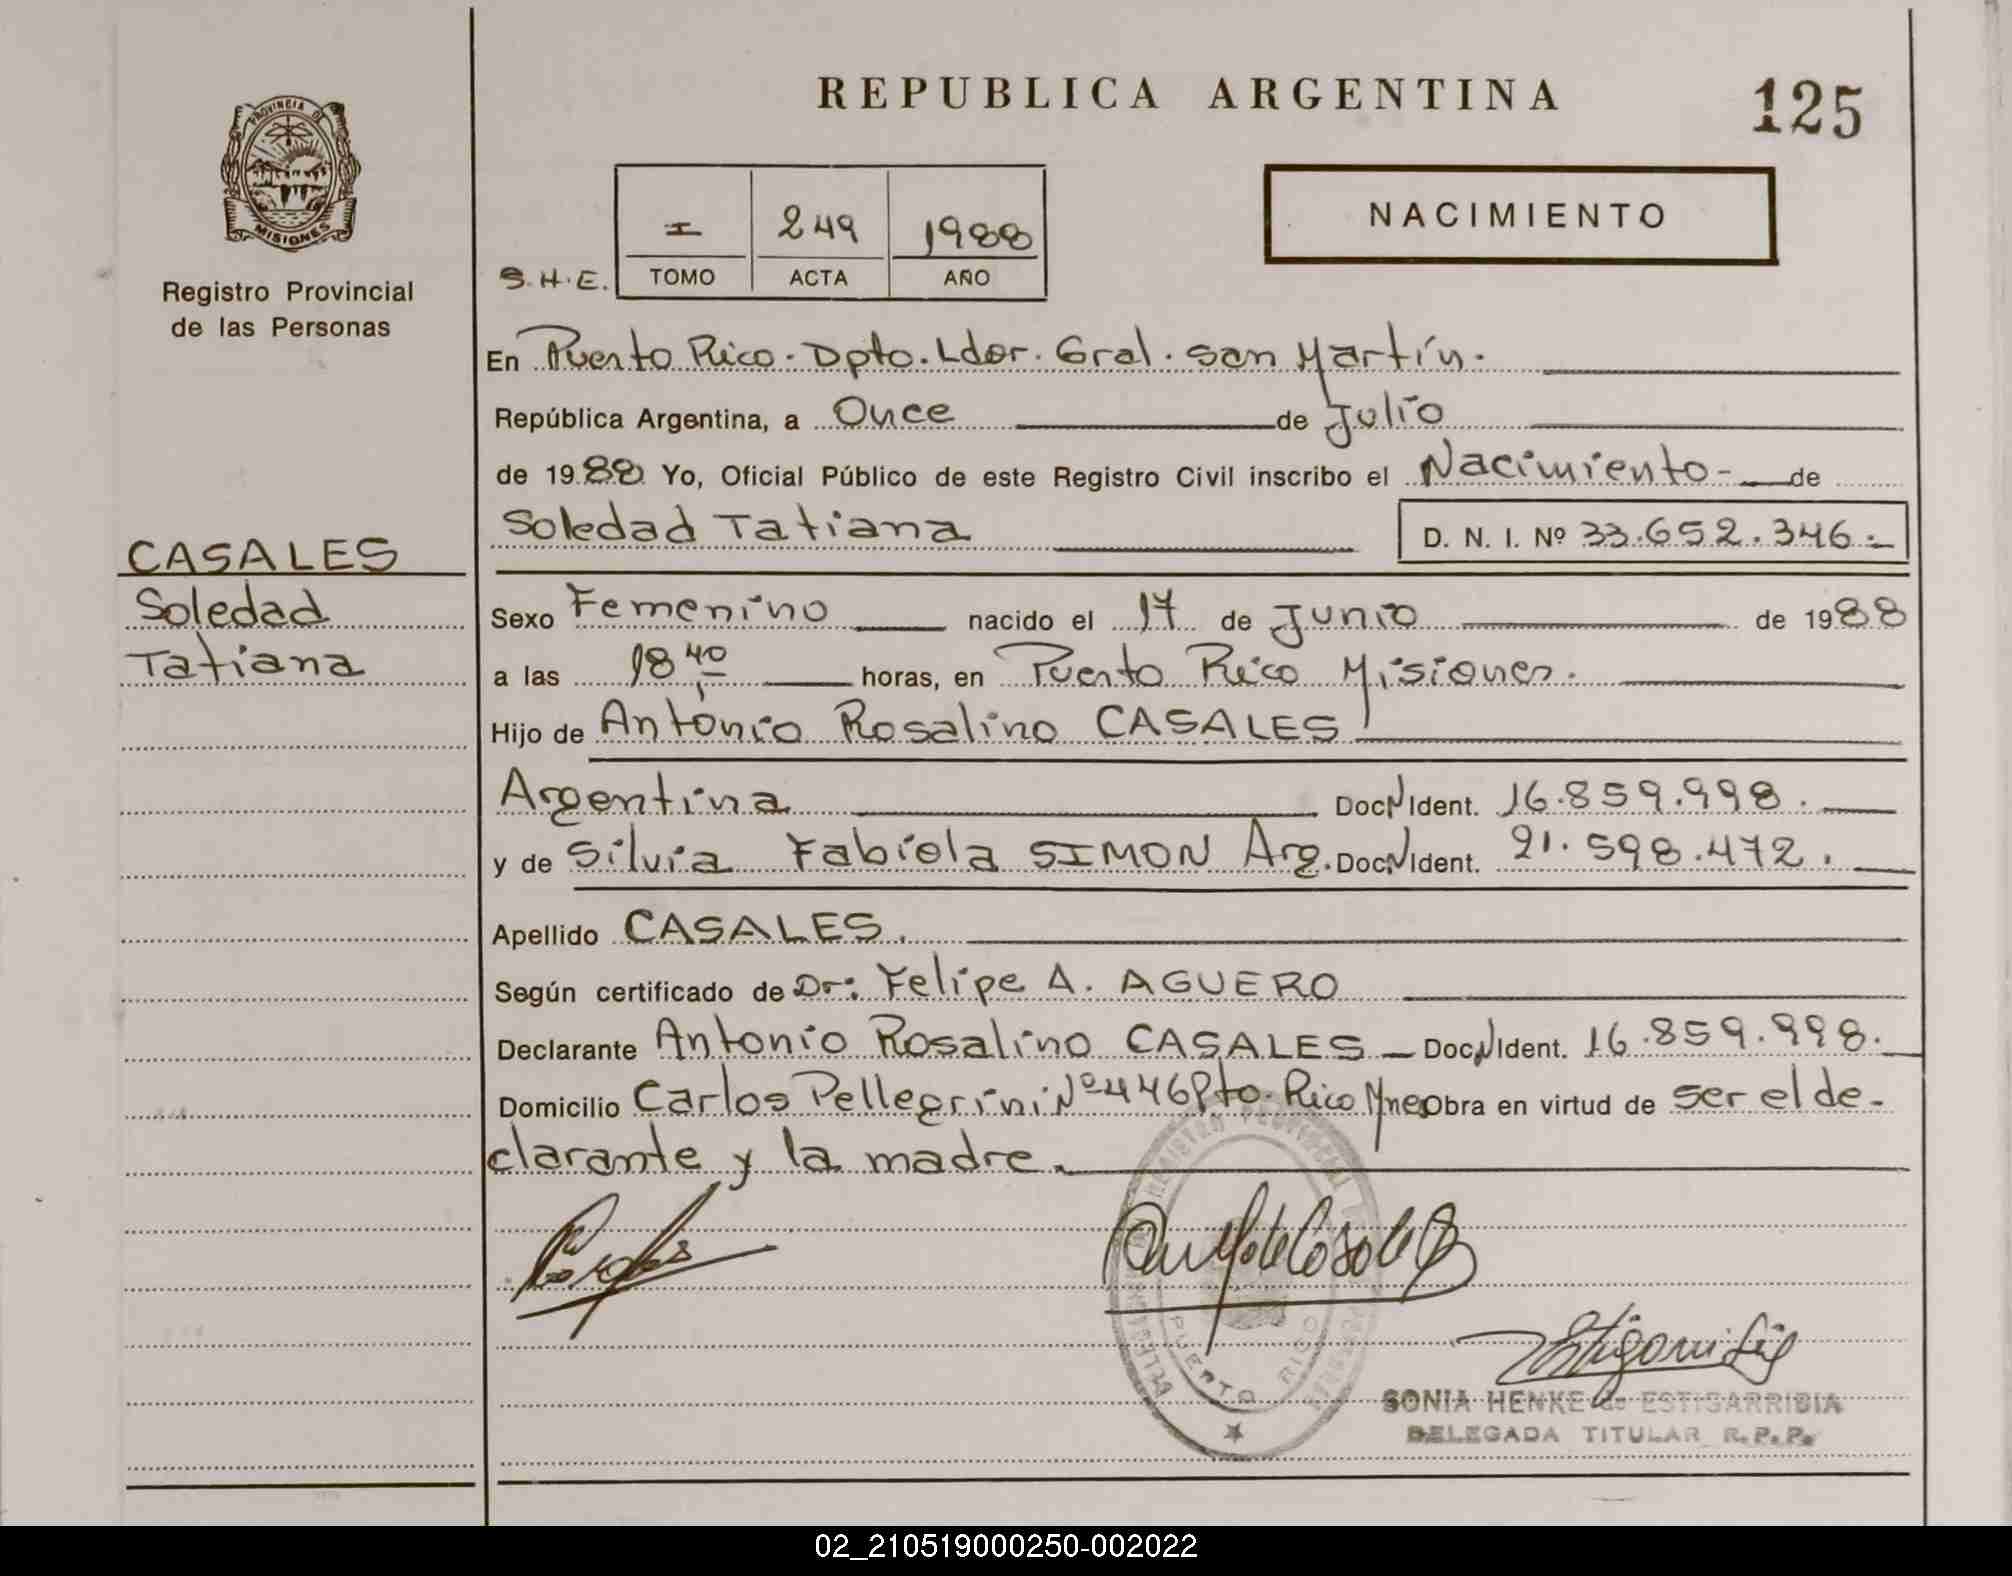 REPUBLICA ARGENTINA
125
PROVINCIA DE
MISIONES
Registro Provincial
de las Personas
I 249 1988
S.H.E. TOMO ACTA AÑO
NACIMIENTO
En Puerto Rico. Dpto. Ldor. Gral. San Martín.
República Argentina, a Once de Julio
de 1988 Yo, Oficial Público de este Registro Civil inscribo el Nacimiento- de
Soledad Tatiana D. N. I. Nº 33.652.346.-
CASALES
Soledad
Tatiana
Sexo Femenino nacido el 17 de Junio de 1988
a las 18 40 horas, en Puerto Rico Misiones.
Hijo de Antonio Rosalino CASALES
Argentina Doc. N Ident. 16.859.998.
y de Silvia Fabiola SIMON Arg. Doc. N Ident. 21.598.472.
Apellido CASALES.
Según certificado de Dr: Felipe A. AGUERO
Declarante Antonio Rosalino CASALES Doc. N Ident. 16.859.998.
Domicilio Carlos Pellegrini Nº 446 Pto. Rico Mnes Obra en virtud de ser el de-
clarante y la madre.
REGISTRO PROVINCIAL
PUERTO RICO
SONIA HENKE de ESTIGARRIBIA
DELEGADA TITULAR R.P.P.
02_210519000250-002022